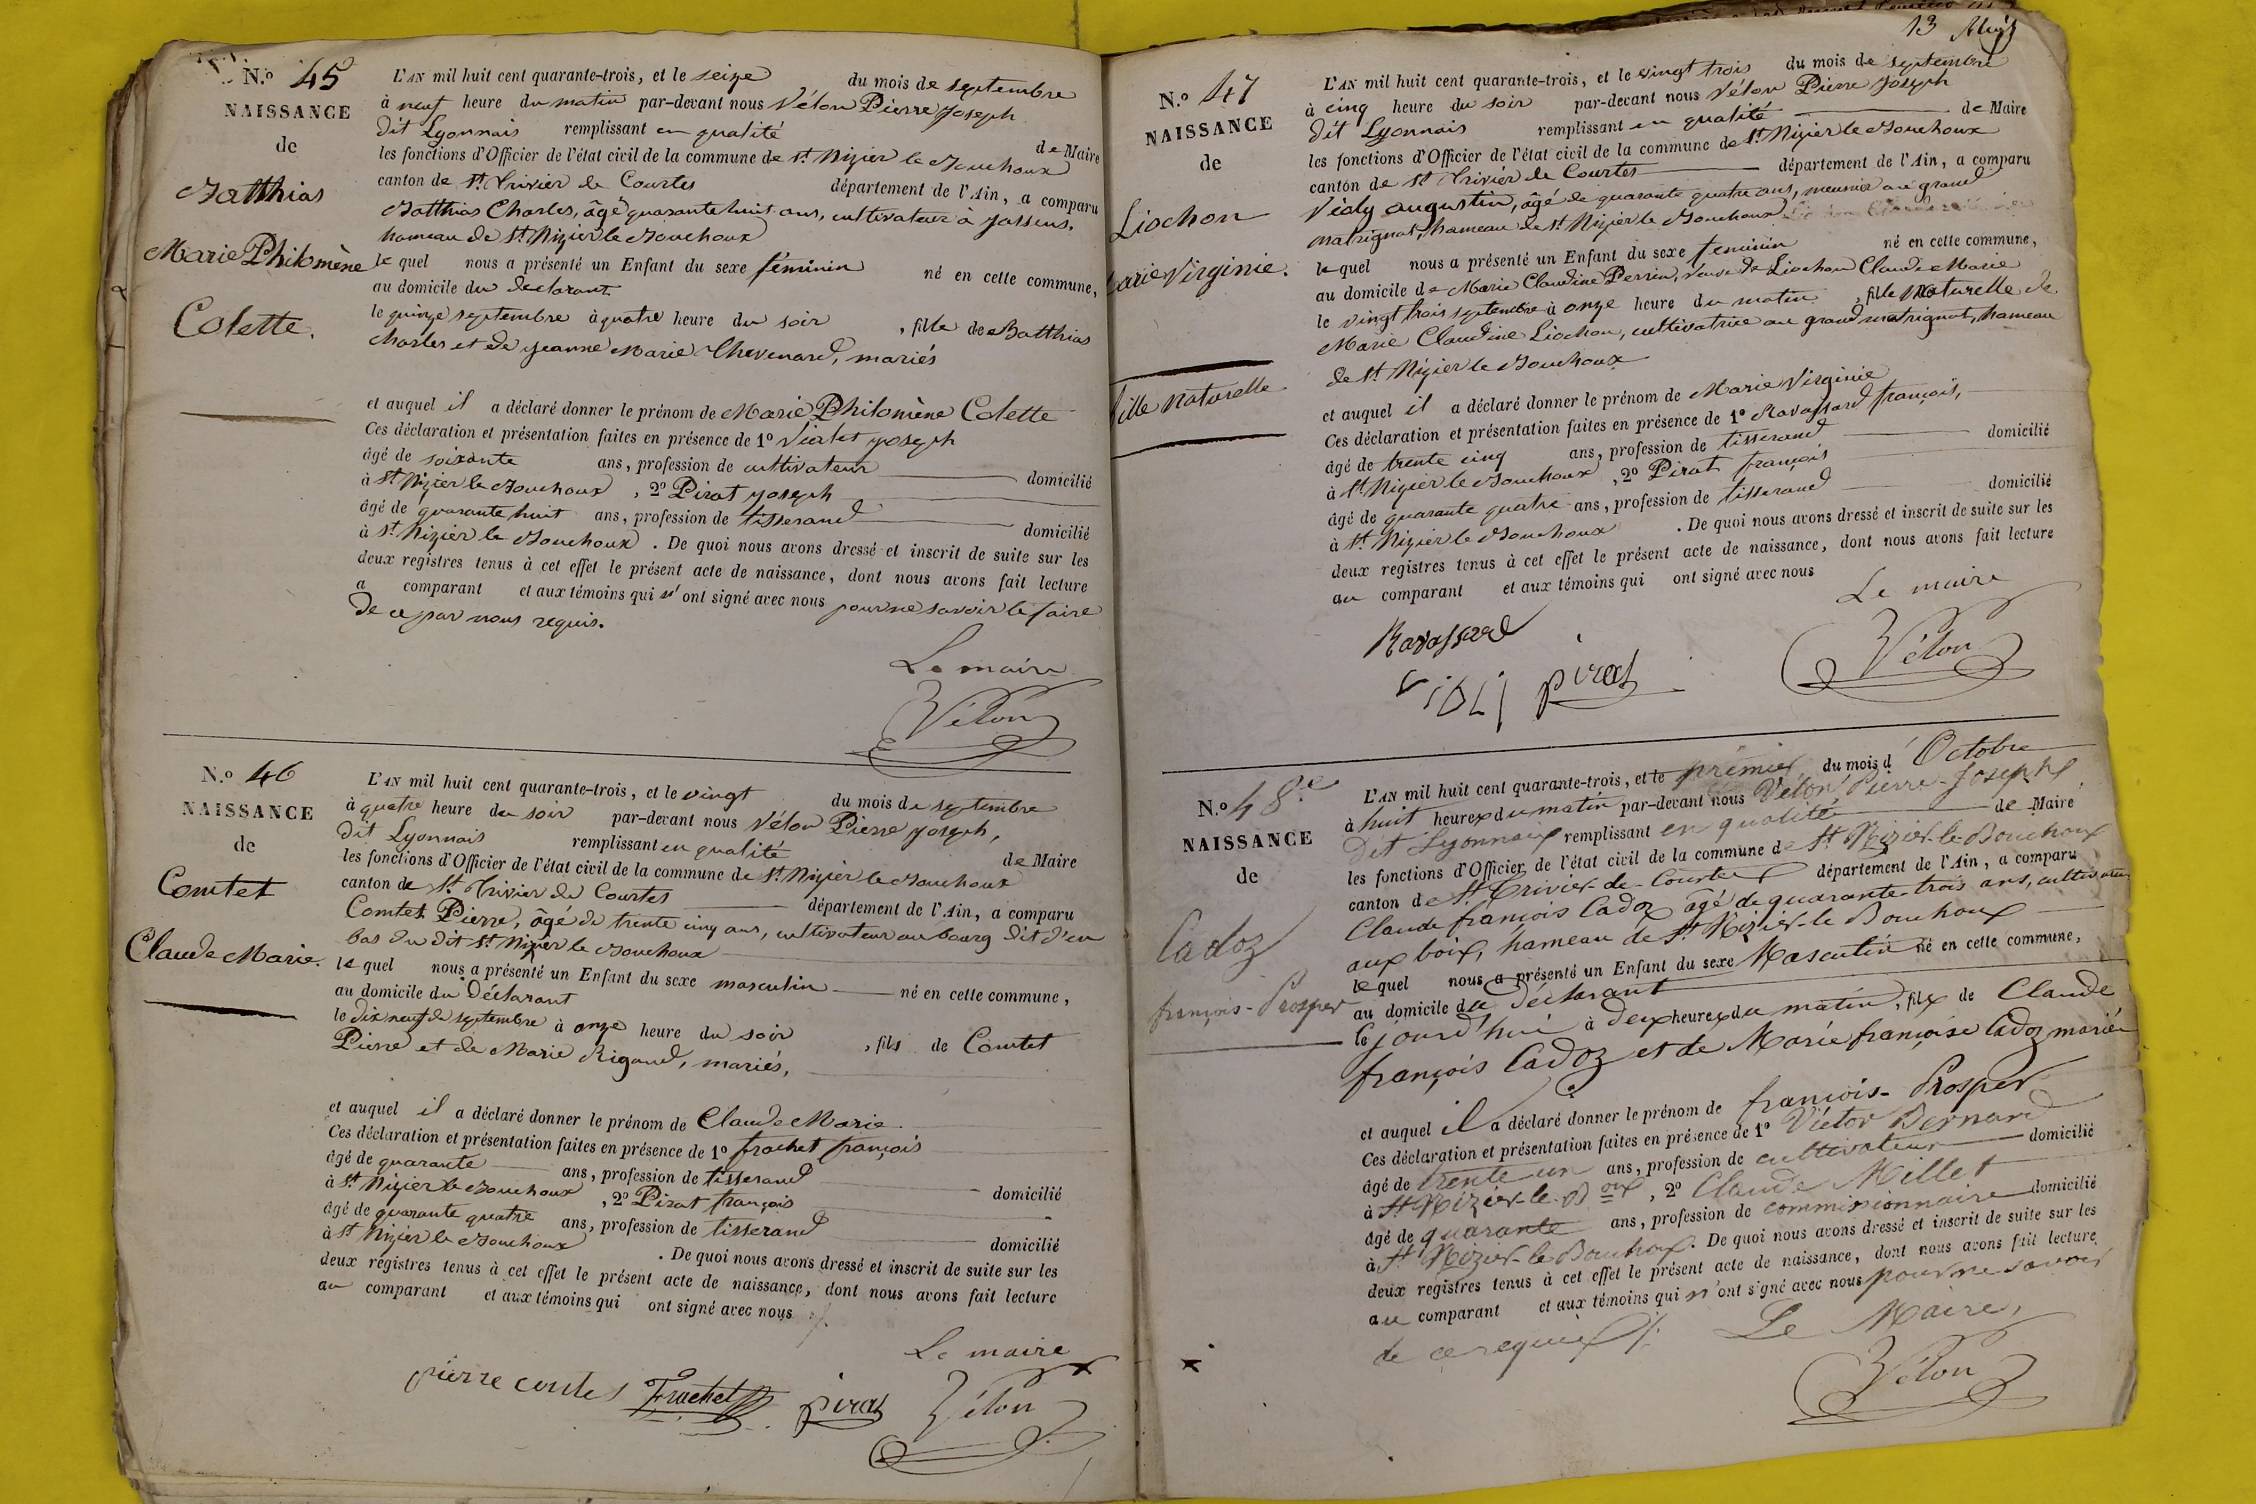 N.º 45
NAISSANCE
de
Batthias
Marie Philomène
Colette.
L'AN mil huit cent quarante-trois, et le seize du mois de septembre
à neuf heure du matin par-devant nous Vélon Pierre Joseph
dit Lyonnais remplissant en qualité de Maire
les fonctions d'Officier de l'état civil de la commune de St Nizier le Bouchoux
canton de St Trivier de Courtes département de l'Ain, a comparu
Batthias Charles, âgé quarante huit ans, cultivateur à Jassens,
hameau de St Nizier le Bouchoux
lequel nous a présenté un Enfant du sexe féminin né en cette commune,
au domicile du declarant
le quinze septembre à quatre heure du soir , fille de Batthias
Charles et de Jeanne Marie Chevenard, mariés
et auquel il a déclaré donner le prénom de Marie Philomène Colette
Ces déclaration et présentation faites en présence de 1º Vialet Joseph
âgé de soixante ans, profession de cultivateur domicilié
à St Nizier le Bouchoux , 2º Pirat Joseph
âgé de quarante huit ans, profession de tisserand domicilié
à St Nizier le Bouchoux . De quoi nous avons dressé et inscrit de suite sur les
deux registres tenus à cet effet le présent acte de naissance, dont nous avons fait lecture
a comparant et aux témoins qui n'ont signé avec nous pour ne savoir le faire
de ce par nous requis.
Le maire
Vélon
N.º 46
NAISSANCE
de
Comtet
Claude Marie.
L'AN mil huit cent quarante-trois, et le vingt du mois de septembre
à quatre heure du soir par-devant nous Vélon Pierre Joseph,
dit Lyonnais remplissant en qualité de Maire
les fonctions d'Officier de l'état civil de la commune de St Nizier le Bouchoux
canton de St Trivier de Courtes département de l'Ain, a comparu
Comtet Pierre, âgé de trente cinq ans, cultivateur au bourg dit d'en
bas du dit St Nizier le Bouchoux
lequel nous a présenté un Enfant du sexe masculin né en cette commune,
au domicile du Déclarant
le dix neuf de septembre à onze heure du soir , fils de Comtet
Pierre et de Marie Rigaud, mariés,
et auquel il a déclaré donner le prénom de Claude Marie
Ces déclaration et présentation faites en présence de 1º frachet françois
âgé de quarante ans, profession de tisserand domicilié
à St Nizier le Bouchoux , 2º Pirat françois
âgé de quarante quatre ans, profession de tisserand domicilié
à St Nizier le Bouchoux . De quoi nous avons dressé et inscrit de suite sur les
deux registres tenus à cet effet le présent acte de naissance, dont nous avons fait lecture
au comparant et aux témoins qui ont signé avec nous
Le maire
pierre contet Frachet pirat Vélon
13
N.º 47
NAISSANCE
de
Liochon
arie Virginie.
fille naturelle
L'AN mil huit cent quarante-trois, et le vingt trois du mois de septembre
à cinq heure du soir par-devant nous Vélon Pierre Joseph
dit Lyonnais remplissant en qualité de Maire
les fonctions d'Officier de l'état civil de la commune de St Nizier le Bouchoux
canton de St Trivier de Courtes département de l'Ain, a comparu
Violy augustin, âgé de quarante quatre ans, meunier au grand
matrignat, hameau de St Nizier le Bouchoux
lequel nous a présenté un Enfant du sexe feminin né en cette commune,
au domicile de Marie Claudine Perrin, veuve de Liochon Claude Marie
le vingt trois septembre à onze heure du matin , fille naturelle de
Marie Claudine Liochon, cultivatrice au grand matrignat, hameau
de St Nizier le Bouchoux
et auquel il a déclaré donner le prénom de Marie Virginie
Ces déclaration et présentation faites en présence de 1º Ravassard françois,
âgé de trente cinq ans, profession de tisserand domicilié
à St Nizier le Bouchoux , 2º Pirat françois
âgé de quarante quatre ans, profession de tisserand domicilié
à St Nizier le Bouchoux . De quoi nous avons dressé et inscrit de suite sur les
deux registres tenus à cet effet le présent acte de naissance, dont nous avons fait lecture
au comparant et aux témoins qui ont signé avec nous
Le maire
Ravassard
violi pirat Vélon
N.º 48.e
NAISSANCE
de
Cadoz
françois-Prosper
L'AN mil huit cent quarante-trois, et le premier du mois d'Octobre
à huit heures du matin par-devant nous Vélon Pierre-Joseph
dit Lyonnais remplissant en qualité de Maire
les fonctions d'Officier de l'état civil de la commune de St Nizier-le-Bouchoux
canton de St Trivier-de-Courtes département de l'Ain, a comparu
Claude françois Cadoz âgé de quarante-trois ans, cultivateur
aux bois, hameau de St Nizier-le Bouchoux
lequel nous a présenté un Enfant du sexe Masculin né en cette commune,
au domicile du déclarant
le jourd'hui à deux heures du matin , fils de Claude
françois Cadoz et de Marie françoise Cadoz mariés
et auquel il a déclaré donner le prénom de françois-Prosper
Ces déclaration et présentation faites en présence de 1º Victor Bernard
âgé de trente-un ans, profession de cultivateur domicilié
à St Nizier-le-Boux , 2º Claude Millet
âgé de quarante ans, profession de commissionnaire domicilié
à St Nizier-le Bouchoux. De quoi nous avons dressé et inscrit de suite sur les
deux registres tenus à cet effet le présent acte de naissance, dont nous avons fait lecture
au comparant et aux témoins qui n'ont signé avec nous pour ne savoir
de ce requis
Le Maire,
Vélon